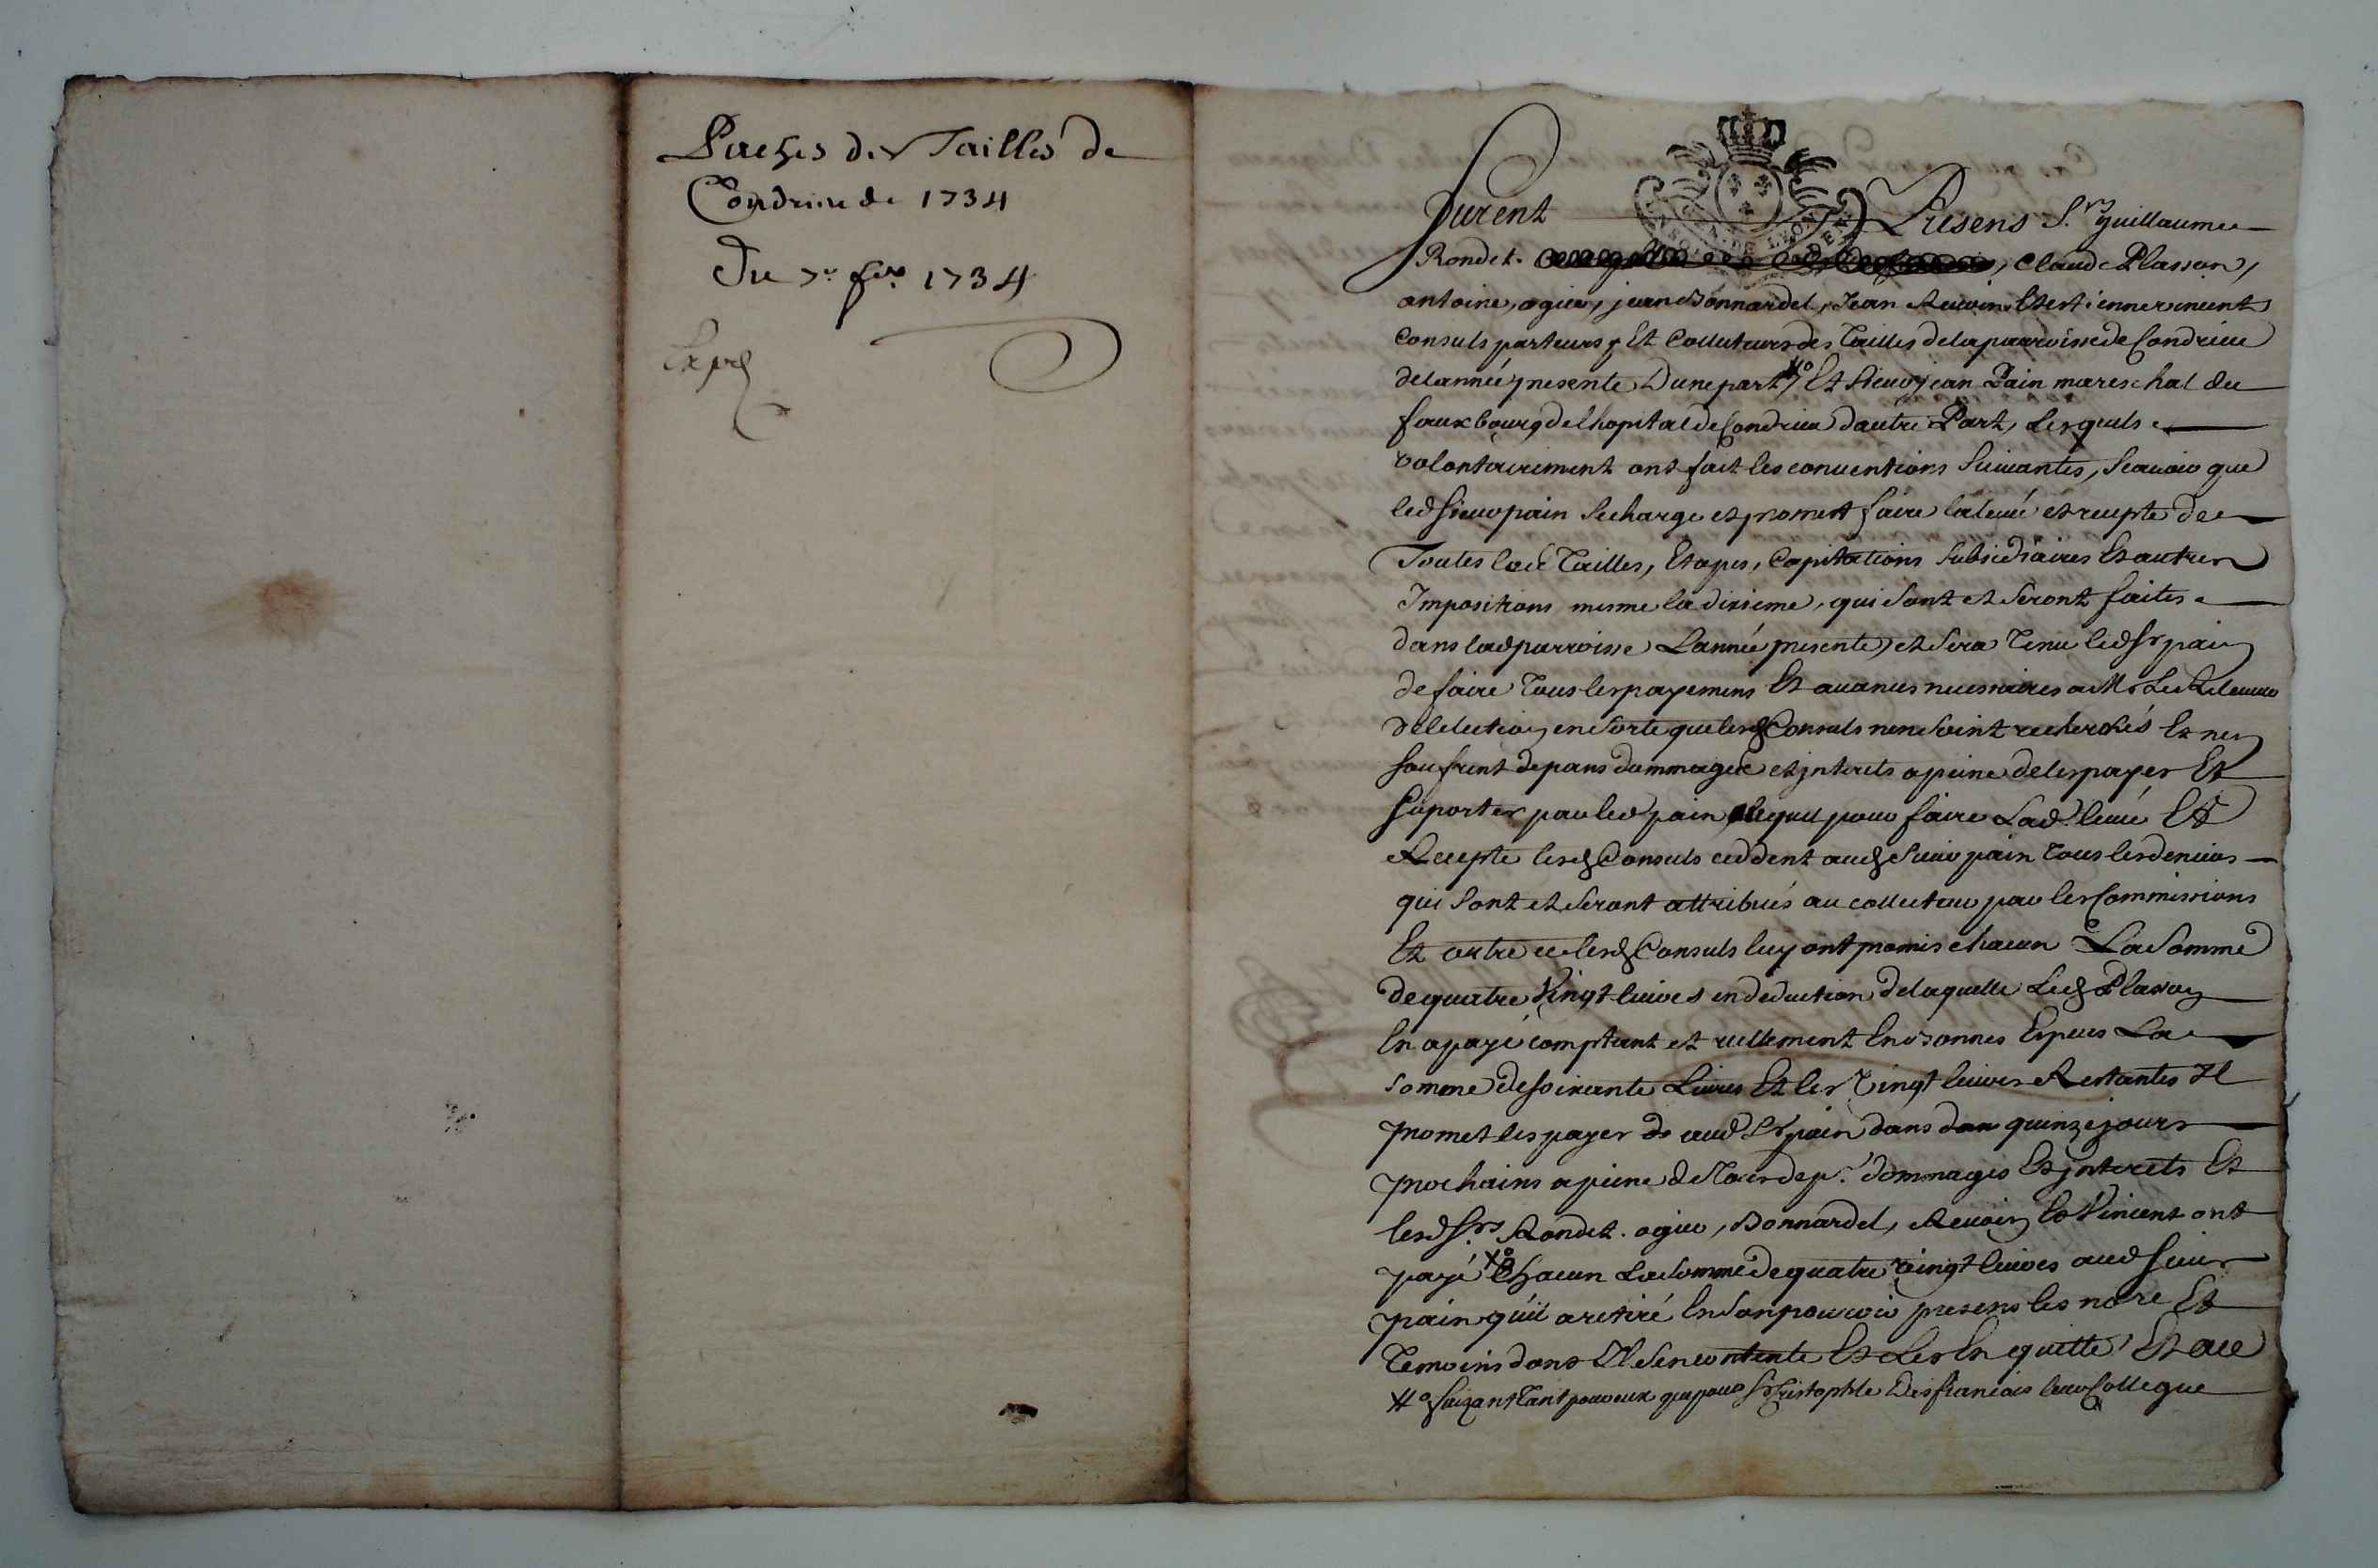 Paches des Tailles de
Condrieu de 1734
Du 7e fer. 1734
Expé
furent Presens S.rs guillaume
Rondet. Claude Plasson,
antoine, ogier, jean Bonnardel, Jean Revoin Et estienne vincent
Consuls parteurs, Et Collecteurs des Tailles de la parroisse de Condrieu
de lannée presente Dune part, Et Sieur jean Pain mareschal du
fauxbourg de lhopital de Condrieu dautre Part, Lesquels
volontairement ont fait les conventions suivantes, scavoir que
led sieur pain se charge et promet faire la levée et recepte de
Toutes les Tailles, Etapes, Capitations subsidiaires Et autres
Impositions mesme la dixieme, qui sont et seront faites
dans lad parroisse Lannée presente, et sera Tenu led Sr pain
de faire Tous les payemens Et avances necessaires a Mr Le Receveur
de lelection en sorte que lesd Consuls nen soint recherchés Et ne
soufrent depans dommages et jnterets a peine de les payer Et
suporter par led pain, lequel pour faire Lad. levée Et
Recepte lesd Consuls ceddent aud sieur pain Tous les deniers
qui sont et seront attribués au collecteur par les Commissions
Et outre ce lesd Consuls luy ont promis chacun La somme
de quatre Vingt livres en deduction de laquelle Led Plasson
En a payé comptant et reellement En bonnes Especes La
somme de soixante Livres Et les Vingt livres Restantes Il
promet les payer aud Sr pain dans quinze jours
prochains a peine de Tous dep. dommages Et jnterets Et
lesd Srs Rondet. ogier, Bonnardel, Revoin Et Vincent ont
payé Chacun La somme de quatre vingt livres aud sieur
pain quil a retiré En son pouvoir presens les nore Et
Temoins dont Il se contente Et Les En quitte Et ace
faizant Tant pour eux que pour Sr Cristophle Desfrancois leur Collegue